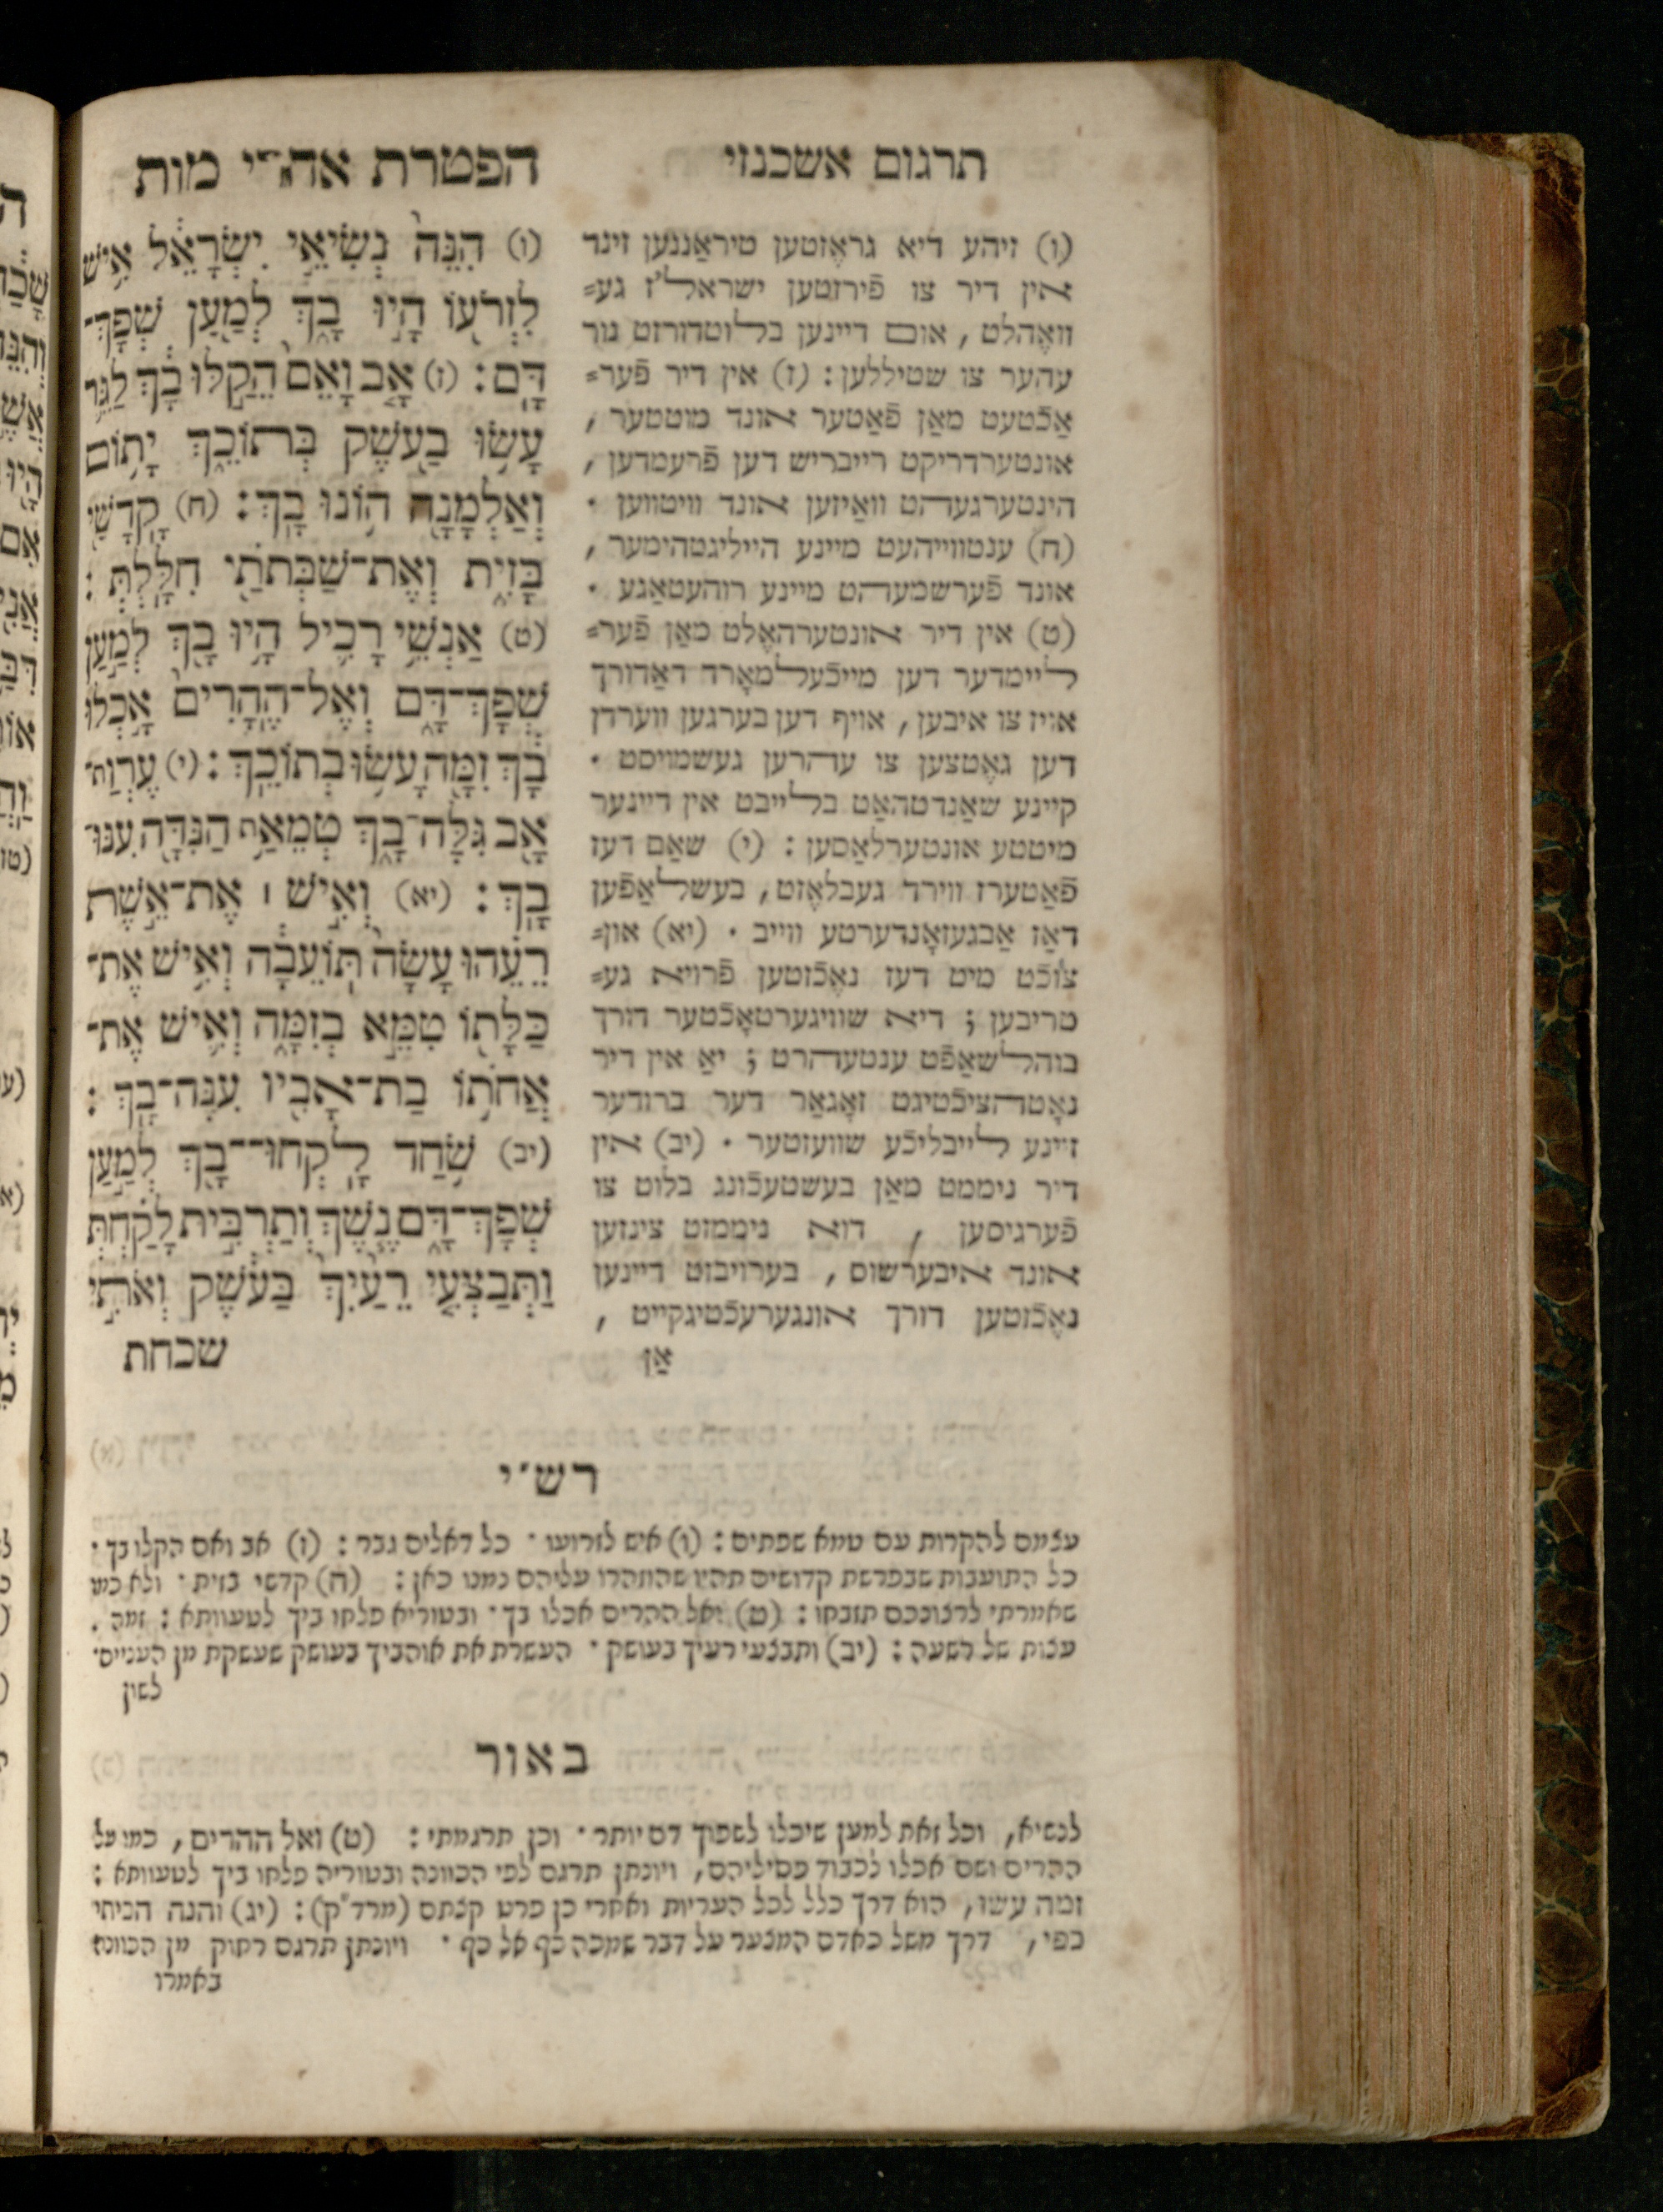 תרגום אשכנזי
(ו) זיהע דיא גראָזטען טיראַננען זינד
אין דיר צו פֿירזטען ישראל'ז גע=
וואֶהלט, אום דיינען בלוטדורזט נור
עהער צו שטיללען: (ז) אין דיר פֿער=
אַכֿטעט מאַן פֿאַטער אונד מוטטער,
אונטערדריקט רייבריש דען פֿרעמדען,
הינטערגעהט וואַיזען אונד וויטווען ·
(ח) ענטווייהעט מיינע הייליגטהימער,
אונד פֿערשמעהט מיינע רוהעטאַגע ·
(ט) אין דיר אונטערהאֶלט מאַן פֿער=
ליימדער דען מייכֿעלמאָרד דאַדורך
אויז צו איבען, אויף דען בערגען ווערדן
דען גאֶטצען צו עהרען געשמויסט ·
קיינע שאַנדטהאַט בלייבט אין דיינער
מיטטע אונטערלאַסען: (י) שאַם דעז
פֿאַטערז ווירד געבלאֶזט, בעשלאַפֿען
דאַז אַבגעזאָנדערטע ווייב · (יא) און=
צוכֿט מיט דעז נאֶכֿזטען פֿרויא גע=
טריבען; דיא שוויגערטאָכֿטער דורך
בוהלשאַפֿט ענטעהרט; יאַ אין דיר
נאָטהציכֿטיגט זאָגאַר דער ברודער
זיינע לייבליכֿע שוועזטער · (יב) אין
דיר ניממט מאַן בעשטעכֿונג בלוט צו
פֿערגיסען, דוא ניממזט צינזען
אונד איבערשוס, בערויבזט דיינען
נאֶכֿזטען דורך אונגערעכֿטיגקייט,
אַן
הפטרת אחרי מות
(ו) הִנֵּה֙ נְשִׂיאֵ֣י יִשְׂרָאֵ֔ל אִ֥ישׁ
לִזְרֹע֖וֹ הָ֣יוּ בָ֑ךְ לְמַ֖עַן שְׁפָךְ־
דָּֽם: (ז) אָ֤ב וָאֵם֙ הֵקַ֣לּוּ בָ֔ךְ לַגֵּ֛ר
עָשׂ֥וּ בַעֹ֖שֶׁק בְּתוֹכֵ֑ךְ יָת֥וֹם
וְאַלְמָנָ֖ה ה֥וֹנוּ בָֽךְ: (ח) קָדָשַׁ֖י
בָּזִ֑ית וְאֶת־שַׁבְּתֹתַ֖י חִלָּֽלְתְּ:
(ט) אַנְשֵׁ֥י רָכִ֛יל הָ֥יוּ בָ֖ךְ לְמַ֣עַן
שְׁפָךְ־דָּ֑ם וְאֶל־הֶֽהָרִים֙ אָ֣כְלוּ
בָ֔ךְ זִמָּ֖ה עָשׂ֥וּ בְתוֹכֵֽךְ: (י) עֶרְוַת־
אָ֖ב גִּלָּה־בָ֑ךְ טְמֵאַ֥ת הַנִּדָּ֖ה עִנּוּ־
בָֽךְ: (יא) וְאִ֣ישׁ ׀ אֶת־אֵ֣שֶׁת
רֵעֵ֗הוּ עָשָׂה֙ תּֽוֹעֵבָ֔ה וְאִ֥ישׁ אֶת־
כַּלָּת֖וֹ טִמֵּ֣א בְזִמָּ֑ה וְאִ֛ישׁ אֶת־
אֲחֹת֥וֹ בַת־אָבִ֖יו עִנָּה־בָֽךְ:
(יב) שֹׁ֥חַד לָֽקְחוּ־בָ֖ךְ לְמַ֣עַן
שְׁפָךְ־דָּ֑ם נֶ֧שֶׁךְ וְתַרְבִּ֣ית לָקַ֗חַתְּ
וַתְּבַצְּעִ֤י רֵעַ֙יִךְ֙ בַּעֹ֔שֶׁק וְאֹתִ֣י
שכחת
רש״י
עצמם להקרות עם טמא שפתים: (ו) איש לזרועו · כל דאלים גבר: (ז) אב ואם הקלו בך ·
כל התועבות שבפרשת קדושים תהיו שהוזהרו עליהם נמנו כאן: (ח) קדשי בזית · ולא כמו
שאמרתי לרצונכם תזבחו: (ט) ואל ההרים אכלו בך · ובטוריא פלחו ביך לטעוותא: זמה.
עצות של רשעה: (יב) ותבצעי רעיך בעושק · העשרת את אוהביך בעושק שעשקת מן העניים ·
לשון
באור
לנשיא, וכל זאת למען שיכלו לשפוך דם יותר · וכן תרגמתי: (ט) ואל ההרים, כמו על
ההרים ושם אכלו לכבוד פסיליהם, ויונתן תרגם לפי הכוונה ובטוריה פלחו ביך לטעוותא:
זמה עשו, הוא דרך כלל לכל העריות ואחרי כן פרט קצתם (מרד״ק): (יג) והנה הכיתי
כפי, דרך משל כאדם המצער על דבר שמכה כף אל כף · ויונתן תרגם רחוק מן הכוונה
באמרו